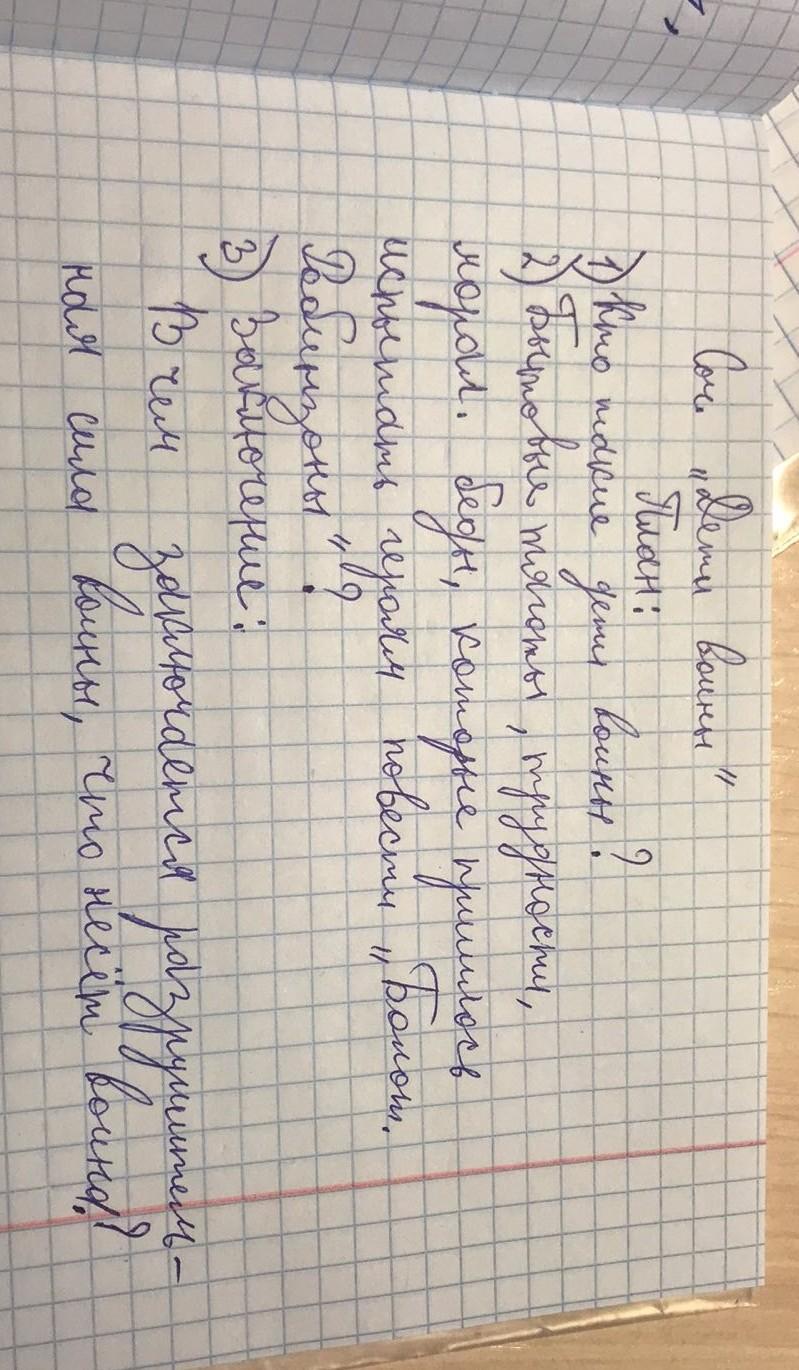 Соч. „Дети войны"
План:
1) Кто такие дети войны?
2) Бытовые тяготы, трудности,
морал. беды, которые пришлось
испытать героям повести „Болот.
Робинзоны"?
3) Заключение:
В чем заключается разрушитель-
ная сила войны, что несёт война?